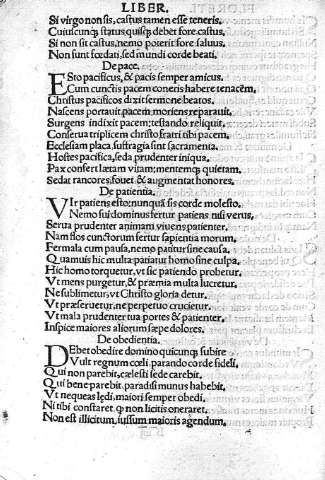 LIBER.
Si virgo non sis, castus tamen esse teneris.
Cuiuscunq; status quisq; debet fore castus.
Si non sit castus, nemo poterit fore saluus.
Non sunt fœdati, sed mundi corde beati.
De pace.
ESto pacificus, & pacis semper amicus.
Cum cunctis pacem coneris habere tenacem.
Christus pacificos dixit sermone beatos.
Nascens portauit pacem, moriens reparauit.
Surgens indixit pacem, testando reliquit.
Conserua triplicem christo fratri tibi pacem.
Ecclesiam placa, suffragia sint sacramenta.
Hostes pacifica, sed a prudenter iniqua.
Pax confert lætam vitam; mentemq; quietam.
Sedat rancores, fouet & augmentat honores.
De patientia.
VIr patiens esto: nunquã sis corde molesto.
Nemo sui dominus fertur patiens nisi verus,
Serua prudenter animam viuens patienter.
Nam flos cunctorum fertur sapientia morum.
Ferma la cum pausa, nemo patitur sine causa.
Quamuis hic multa: patiatur homo sine culpa.
Hic homo torquetur, vt sic patiendo probetur.
Vt mens purgetur, & præmia multa lucretur.
Ne sublimetur, vt Christo gloria detur.
Vt præseruetur, ne perpetuo crucietur.
Vt mala prudenter tua portes & patienter,
Inspice maiores aliorum sæpe dolores.
De obedientia.
DEbet obedire domino quicunq; subire
Vult regnum cœli, parando corde fideli,
Qui non parebit, cælesti sede carebit.
Qui bene parebit, paradisi munus habebit,
Vt nequeas lędi, maiori semper obedi.
Ni tibi constaret, ꝙ non licitì oneraret.
Non est illicitum, iussum maioris agendum.